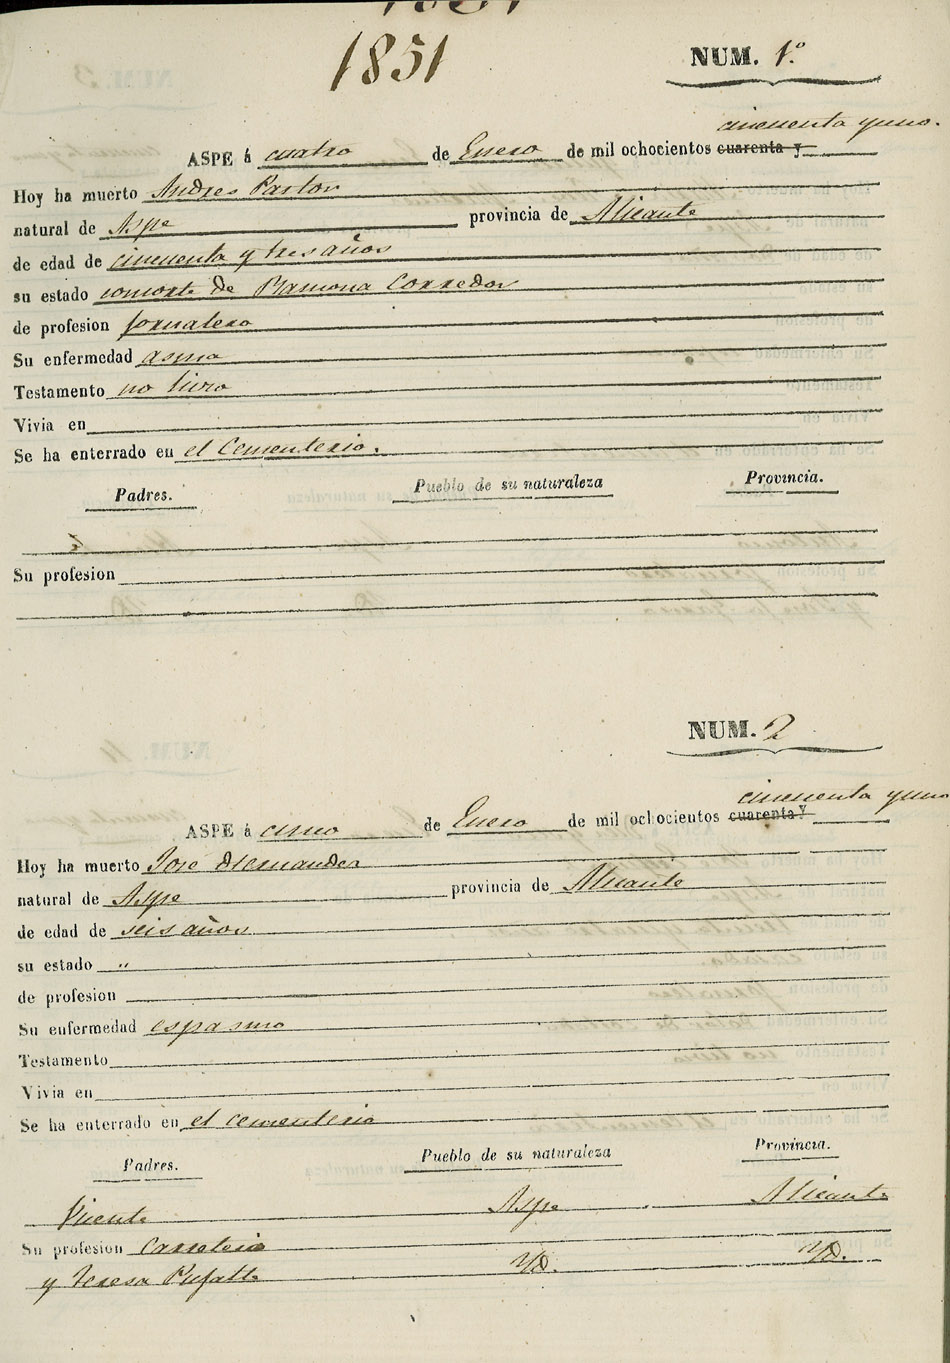 1851
NUM. 1.º
cincuenta y uno.
ASPE á cuatro de Enero de mil ochocientos cuarenta y
Hoy ha muerto Andres Pastor
natural de Aspe provincia de Alicante
de edad de cincuenta y tres años
su estado consorte de Ramona Corredor
de profesion jornalero
Su enfermedad asma
Testamento no hizo
Vivia en
Se ha enterrado en el Cementerio.
Padres. Pueblo de su naturaleza Provincia.
Su profesion
NUM. 2
cincuenta y uno
ASPE á cinco de Enero de mil ochocientos cuarenta y
Hoy ha muerto Jose Hernandez
natural de Aspe provincia de Alicante
de edad de seis años
su estado "
de profesion
Su enfermedad espasmo
Testamento
Vivia en
Se ha enterrado en el cementerio
Padres. Pueblo de su naturaleza Provincia.
Vicente Aspe Alicante
Su profesion Carretero
y Teresa Pujalte Yd. Yd.